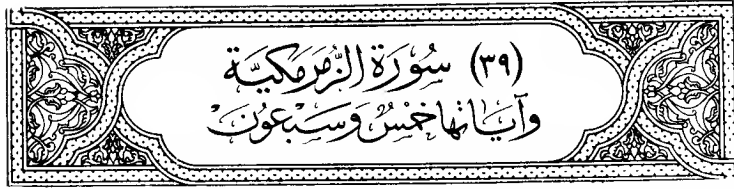 (٣٩) سُورَة الزُّمَرِ مَكِيَّة
وَآيَاتُهَا خَمْسٌ وَسَبْعُونَ